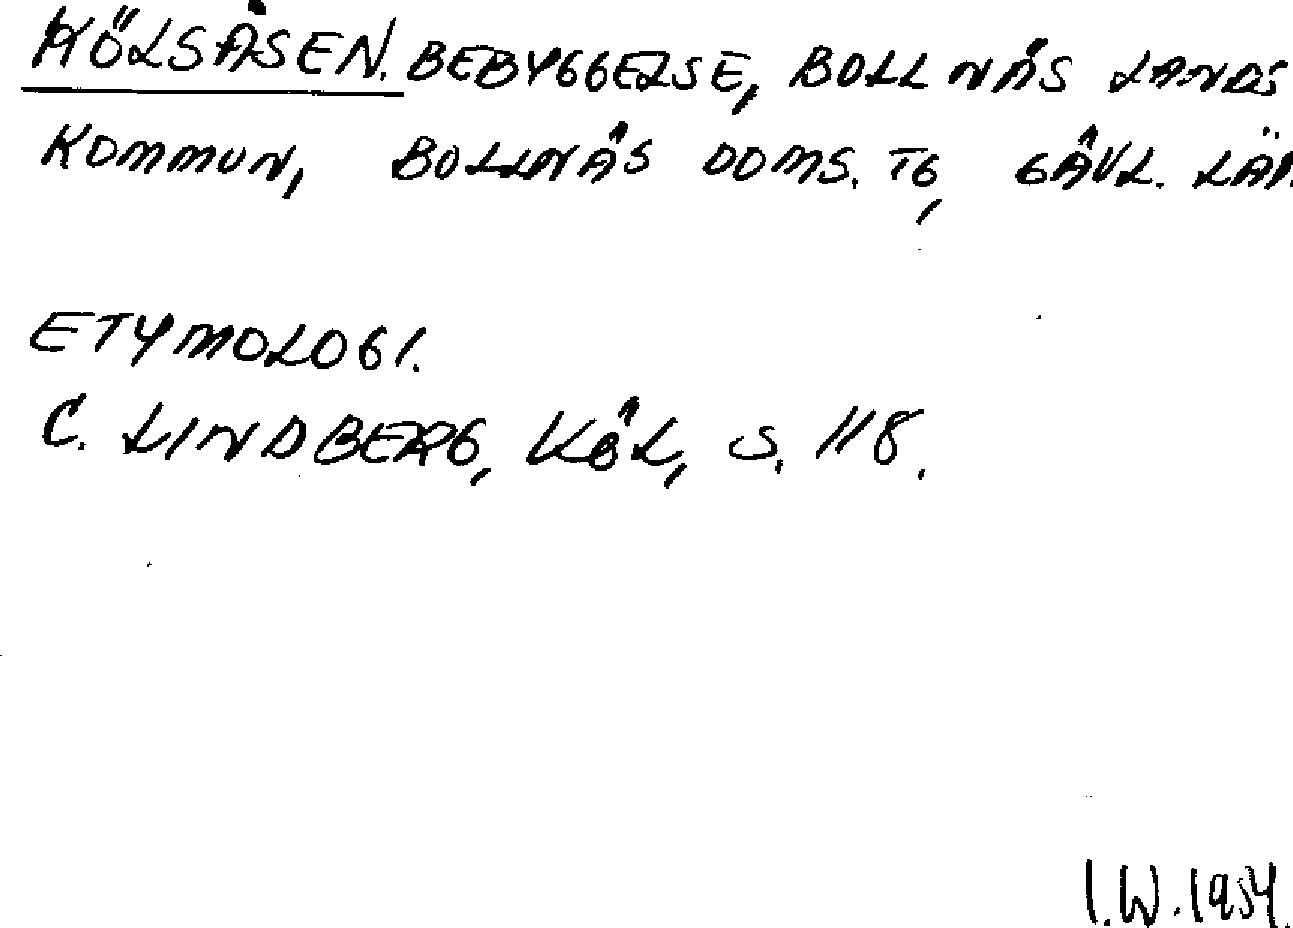 KÖLSÅSEN. BEBYGGELSE, BOLLNÄS LANDS
KOMMUN, BOLLNÄS DOMS. TG, GÄVL. LÄN.
ETYMOLOGI.
C. LINDBERG, KÖL, S. 118.
I.W. 1954.